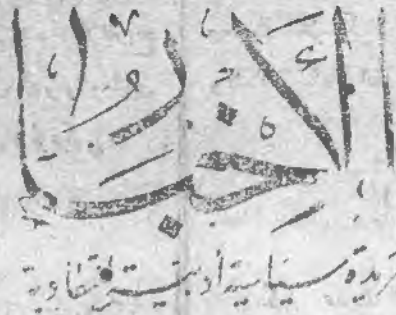 الأخبار
جريدة سياسية أدبية اقتصادية